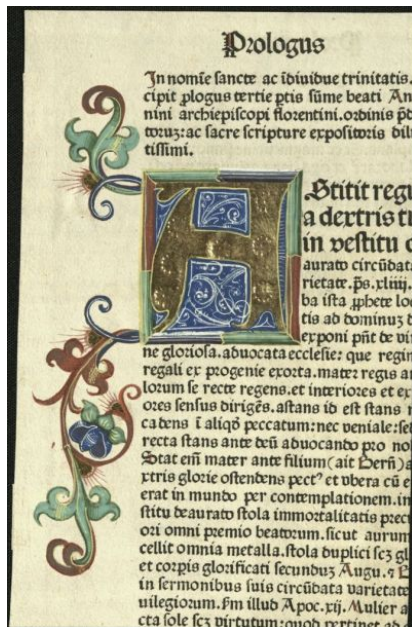 Prologus
In nomīe sancte ac īdiuidue trinitatis.
cipit ꝓlogus tertie ꝑtis sūme beati An
nini archiepiscopi florentini.ordinis p̄d
toruꝫ:ac sacre scripture expositoris dili
tissimi.
AStitit regi
a dextris t
in vestitu d
aurato circūdata
rietate.p̄s.xliiij.
ba ista ꝓphete loc
tis ad dominuꝫ d
exponi pn̄t de vir
ne gloriosa.aduocata ecclesie: que regin
regali ex progenie exorta.mater regis an
lorum se recte regens.et interiores et ext
ores sensus dirigēs.astans id est stans n
cadens ī aliqḋ peccatum:nec veniale:sed
recta stans ante deū aduocando pro nob
Stat em̄ mater ante filium (ait Bern̄) a
xtris glorie ostendens pectꝰ et vbera cū e
erat in mundo per contemplationem.in
stitu deaurato stola immortalitatis preci
ori omni premio beatorum.sicut aurum
cellit omnia metalla.stola duplici scꝫ gl
et corpis glorificati secunduꝫ Augu. ⁊ B
in sermonibus suis circūdata varietate
uilegiorum.fm illud Apoc.xij. Mulier a
cta sole scꝫ virtutum:quod pertinet ad